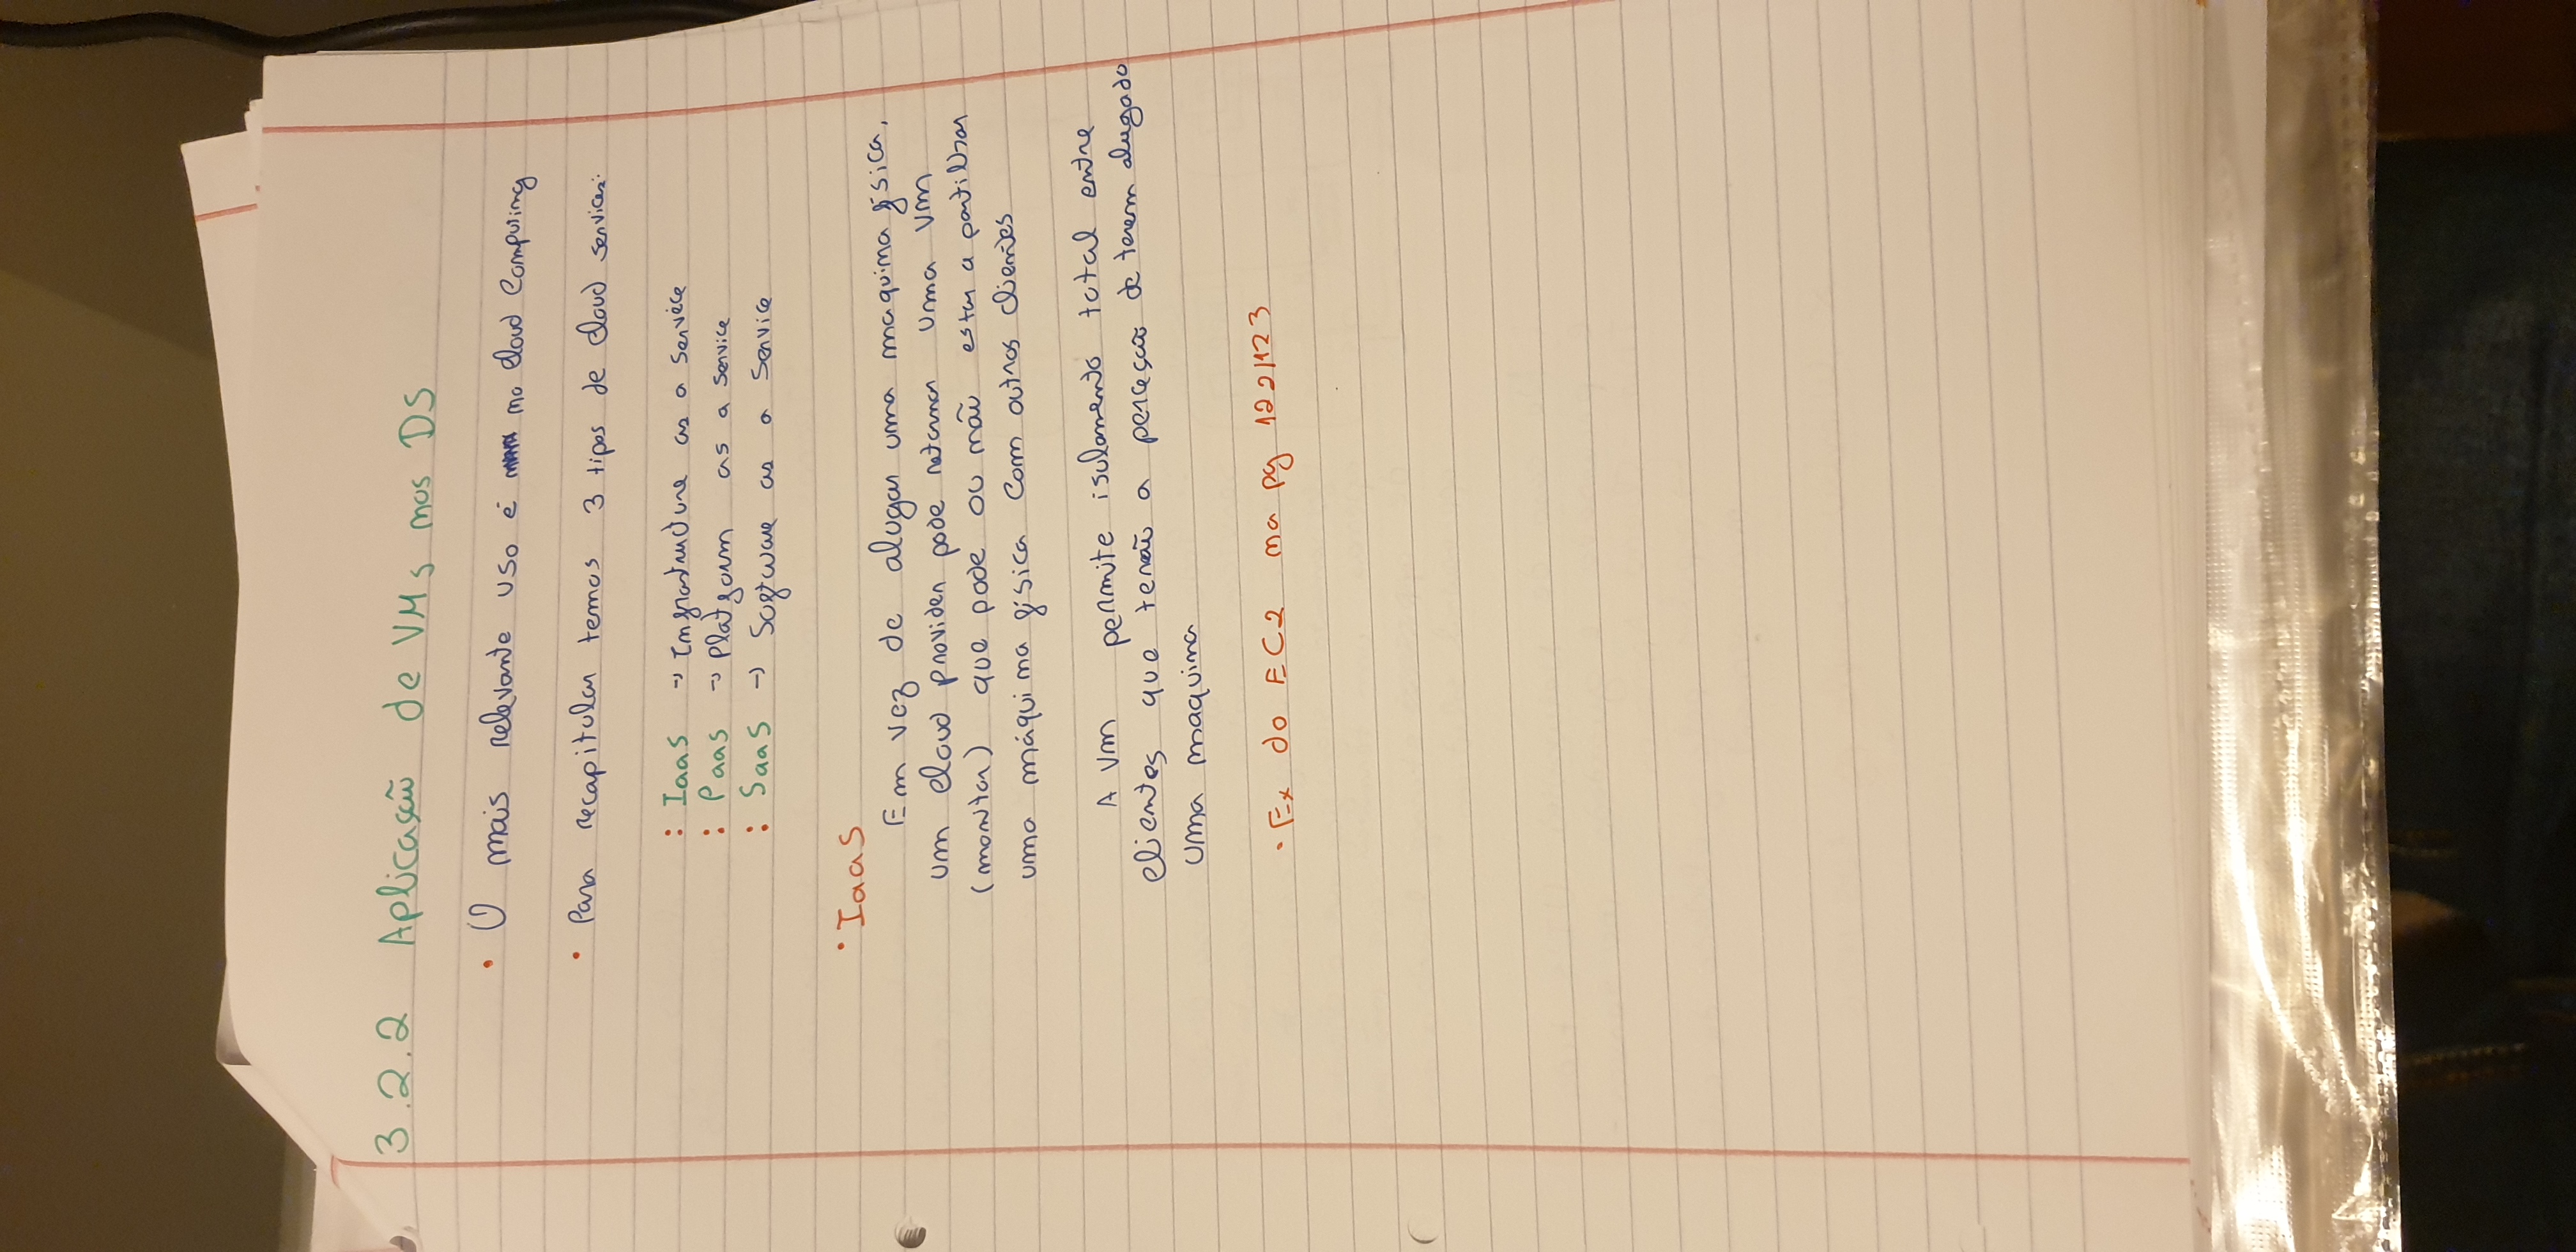 3.2.2 Aplicação de VMs nos DS
• O mais relevante uso é no Cloud Computing
• Para recapitular temos 3 tipos de cloud services:
: IaaS → Infrastructure as a service
: PaaS → Platform as a service
: SaaS → Software as a Service
• IaaS
Em vez de alugar uma maquina física,
um cloud provider pode retornar uma VM
(monitor) que pode ou não estar a partilhar
uma máquina física com outros clientes
A VM permite isolamento total entre
clientes que terão a perceção de terem alugado
uma maquina
• Ex do EC2 na pg 122/123